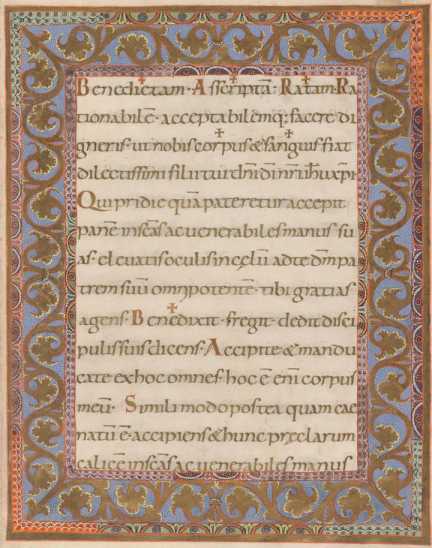 Benedictam · Ascriptā · Ratam · Ra
tionabilē · acceptabilēmq; facere di
gneris · ut nobis corpus & sanguis fiat
dilectissimi filii tui dn̄i dī nr̄i ihū xp̄i
Qui pridie quā pateretur accepit
panē in sc̄as ac uenerabiles manus su
as · eleuatis oculis in cęlū ad te dm̄ pa
trem suū omnipotentē · tibi gratias
agens · Benedixit · fregit · dedit disci
pulis suis dicens · Accipite & mandu
cate ex hoc omnes · hoc ē eni corpus
meū · Simili modo postea quam cae
natū ē · accipiens & hunc pręclarum
calicē in sc̄as ac uenerabiles manus